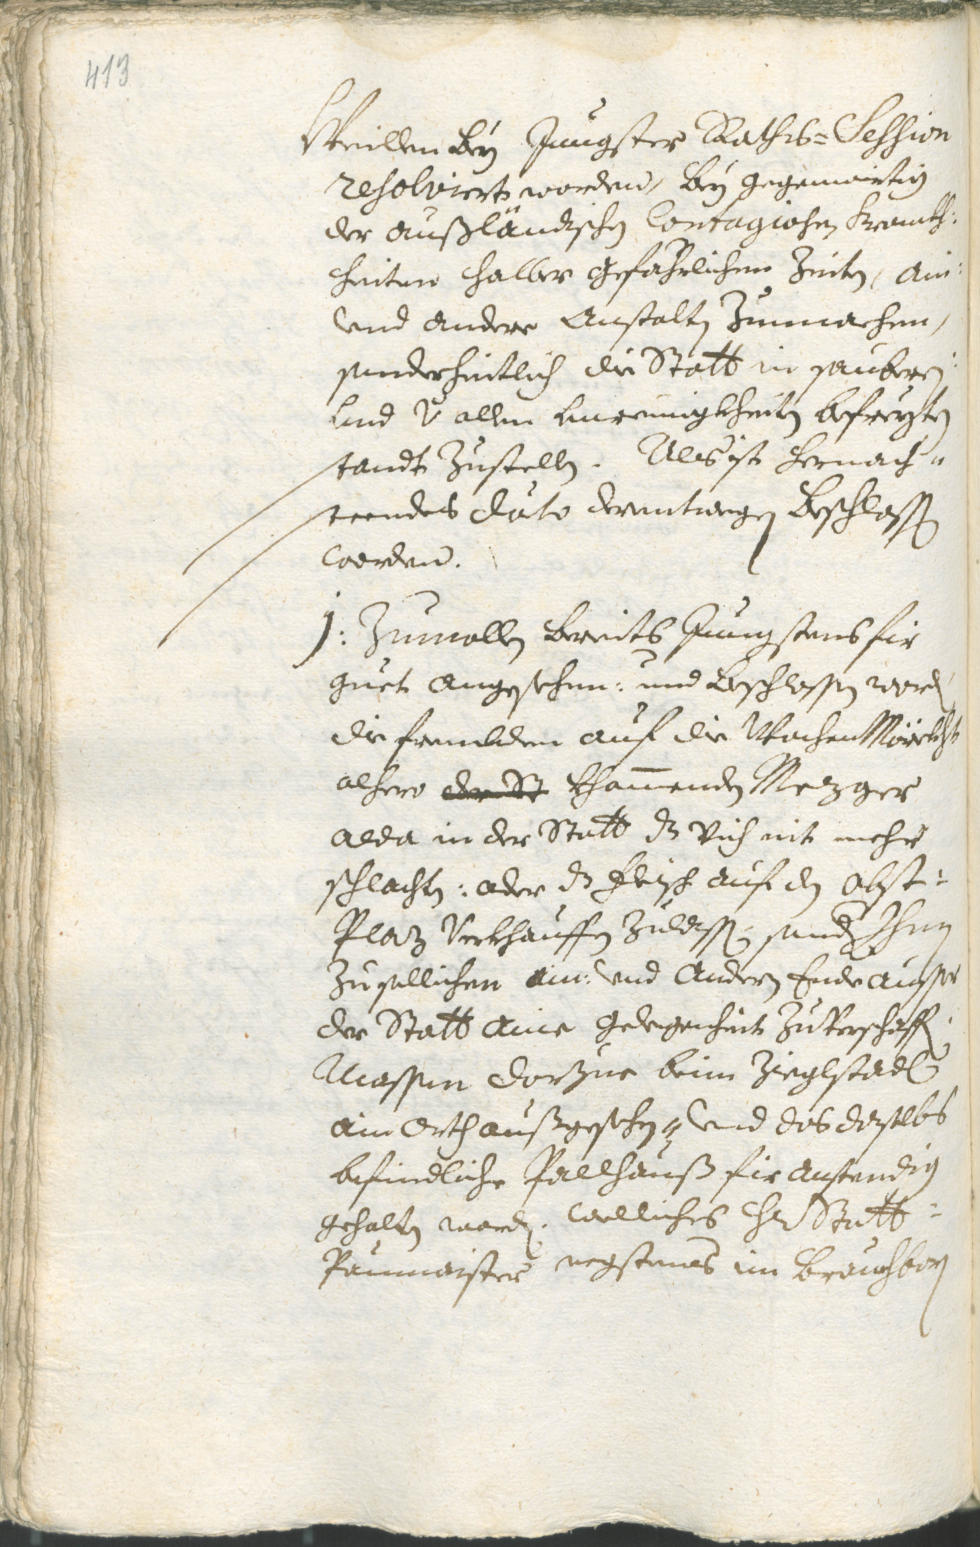 413
Weillen bey Jüngster Raths=Session
resolviert worden, bey gegenwirtig
der außländischen Contagiosen Kranckh:
heiten halber gefährlichen Zeiten, ain:
vnd andere Anstalten Zumachen,
sonderheitlich die Statt in saubern:
vnd v allen vnreinigkheiten befreyten
standt Zustellen. Als ist hernach"
steendes dato derentwegen beschlossen
worden.
1: Zumallen bereits Jüngstens für
guet angesehen: und beschlossen worden
die frembden auf die WochenMärckht
alhero der St khommenden Mezger
alda in der Statt dz Vich nit mehr
schlachten: oder dz fleisch auf den obst=
Plaz Verkhauffen Zulassen: sondern Ihnen
Zu sollichen ain: vnd andern Ende ausser
der Statt aine gelegenheit Zuverschaffen:
Massen darzue beim Zieglstadl
ain Orth außgesehen, vnd das daselbs
befindliche Pallhauß für anstendig
gehalten worden. welliches Hr Statt=
Paumaister negstens in brauchbaren